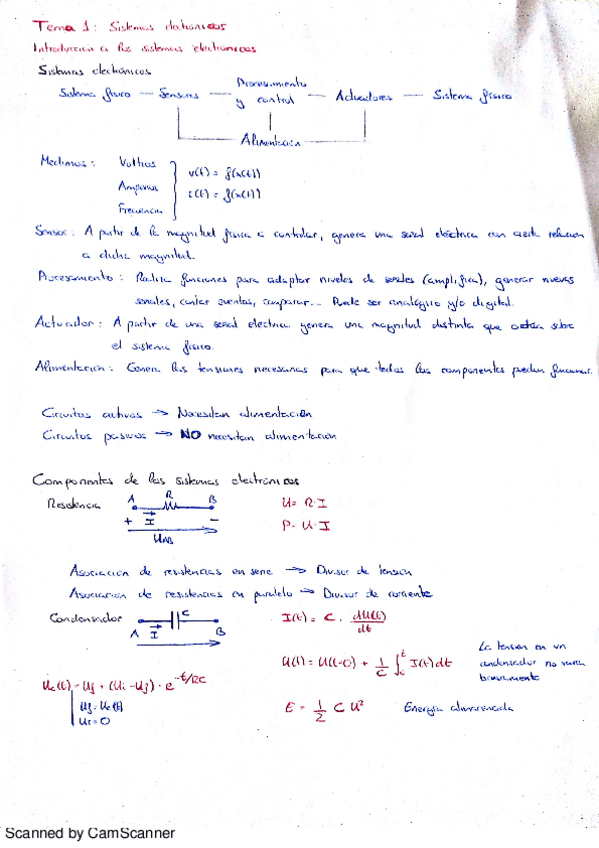 Tema 1: Sistemas electrónicos
Introducción a los sistemas electrónicos
Sistemas electrónicos
Sistema físico — Sensores — Procesamiento y control — Actuadores — Sistema físico
Alimentación
Medimos: Voltios
Amperios
Frecuencia
v(t) = f(x(t))
i(t) = f(x(t))
Sensor: A partir de la magnitud física a controlar, genera una señal eléctrica con cierta relación
a dicha magnitud.
Procesamiento: Realiza funciones para adaptar niveles de señales (amplifica), generar nuevas
señales, contar eventos, comparar... Puede ser analógico y/o digital.
Actuador: A partir de una señal eléctrica genera una magnitud distinta que actúa sobre
el sistema físico.
Alimentación: Genera las tensiones necesarias para que todos los componentes puedan funcionar.
Circuitos activos → Necesitan alimentación
Circuitos pasivos → NO necesitan alimentación
Componentes de los sistemas electrónicos
Resistencia A R B
+ I −
UAB
U = R·I
P = U·I
Asociación de resistencias en serie → Divisor de tensión
Asociación de resistencias en paralelo → Divisor de corriente
Condensador C
A I B
I(t) = C · dU(t)/dt
U(t) = U(t=0) + 1/C ∫₀ᵗ I(t) dt
La tensión en un
condensador no varía
bruscamente
Uc(t) = Uf + (Ui − Uf) · e^(−t/RC)
Uf = Uc(t)
Ui = 0
E = 1/2 C U² Energía almacenada
Scanned by CamScanner